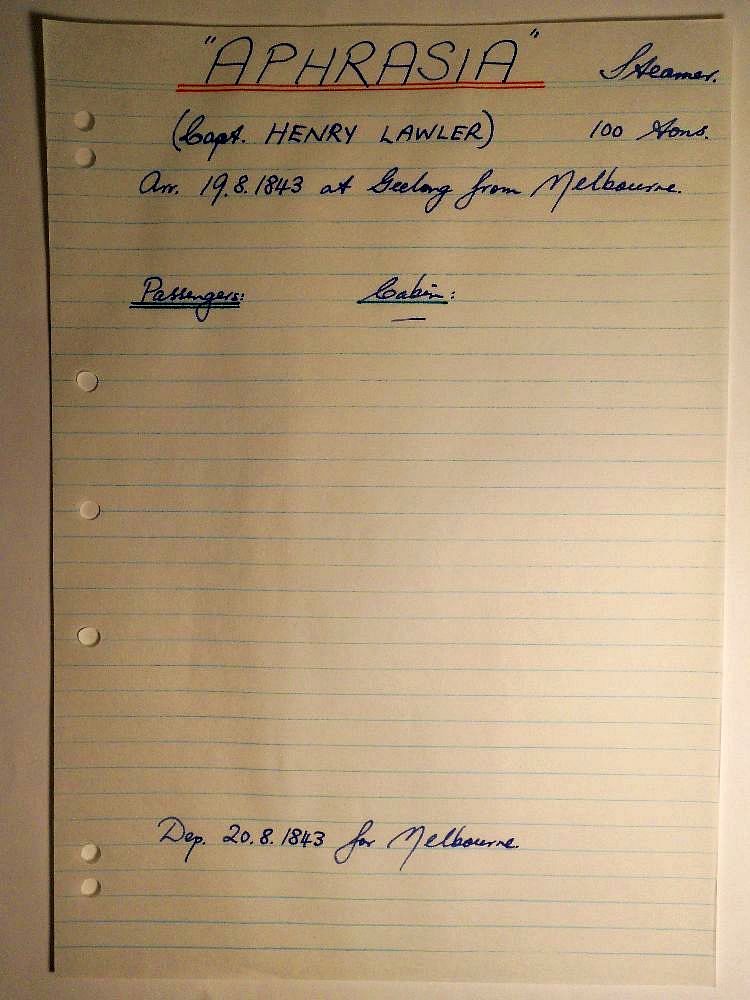 "APHRASIA" Steamer.
(Capt. HENRY LAWLER) 100 tons.
Arr. 19.8.1843 at Geelong from Melbourne.
Passengers: Cabin:
—
Dep. 20.8.1843 for Melbourne.